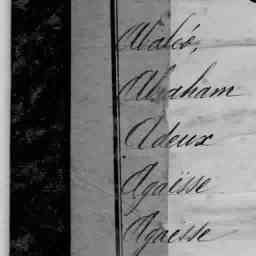 Abaléo,
Abraham
Adeux
Agaisse
Agaësse